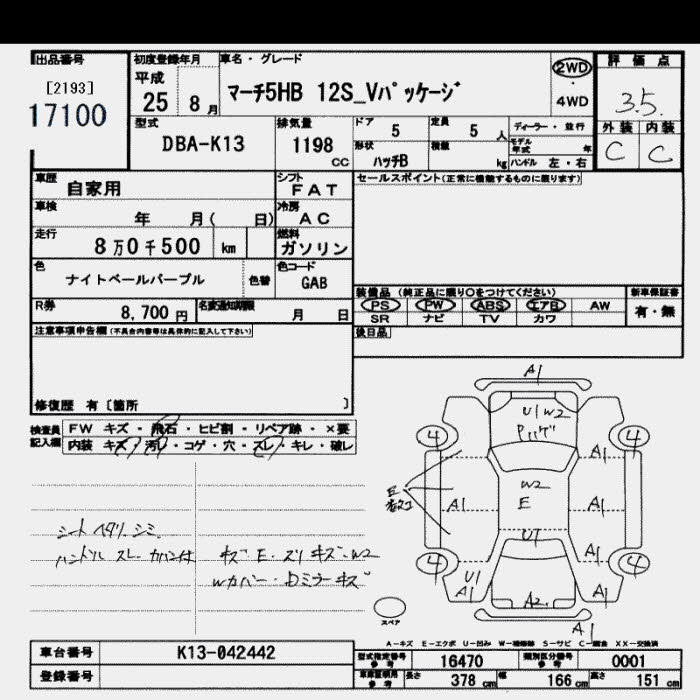 出品番号
[2193]
17100
初度登録年月
平成
25 8月
車名・グレード
マーチ5HB 12S_Vパッケージ
2WD
・
4WD
評価点
3.5
外装 内装
C C
型式
DBA-K13
排気量
1198
cc
ドア 5
定員 5 人
形状 ハッチB
積載 kg
ディーラー・並行
モデル年式 年
ハンドル 左・右
車歴
自家用
シフト
FAT
車検
年 月( 日)
冷房
AC
走行
8万0千500 km
燃料
ガソリン
色
ナイトベールパープル
色替
色コード
GAB
R券
8,700円
名変通知期限
月 日
セールスポイント(正常に機能するものに限ります)
装備品(純正品に限り○をつけてください)
PS PW ABS エアB AW
SR ナビ TV カワ
新車保証書
有・無
後日品
注意事項申告欄(不具合内容等は具体的に記入して下さい)
修復歴 有〔箇所 〕
検査員記入欄
FW キズ・飛石・ヒビ割・リペア跡・×要
内装 キズ・汚レ・コゲ・穴・スレ・キレ・破レ
シートヘタリ.シミ.
ハンドル スレ.カバー付
キズ・E・スリキズ・W2
Wカバー・Dミラーキズ
A1
U1 W2
4 4
A1
W2
E
E
A1 A1
U1
A1
4 4
U1
A1
A1
A2
A1
スペア
A-キズ E-エクボ U-凹み W-補修跡 S-サビ C-腐食 XX-交換済
車台番号
K13-042442
登録番号
型式指定番号
参考
16470
類別区分番号
参考
0001
車庫証明用
参考
長さ 378 cm
幅 166 cm
高さ 151 cm